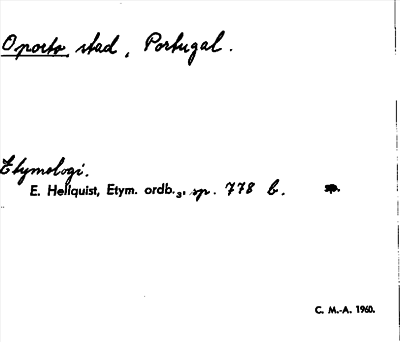 Oporto, stad, Portugal.
Etymologi.
E. Hellquist, Etym. ordb.₃, sp. 778 b.
C. M.-A. 1960.